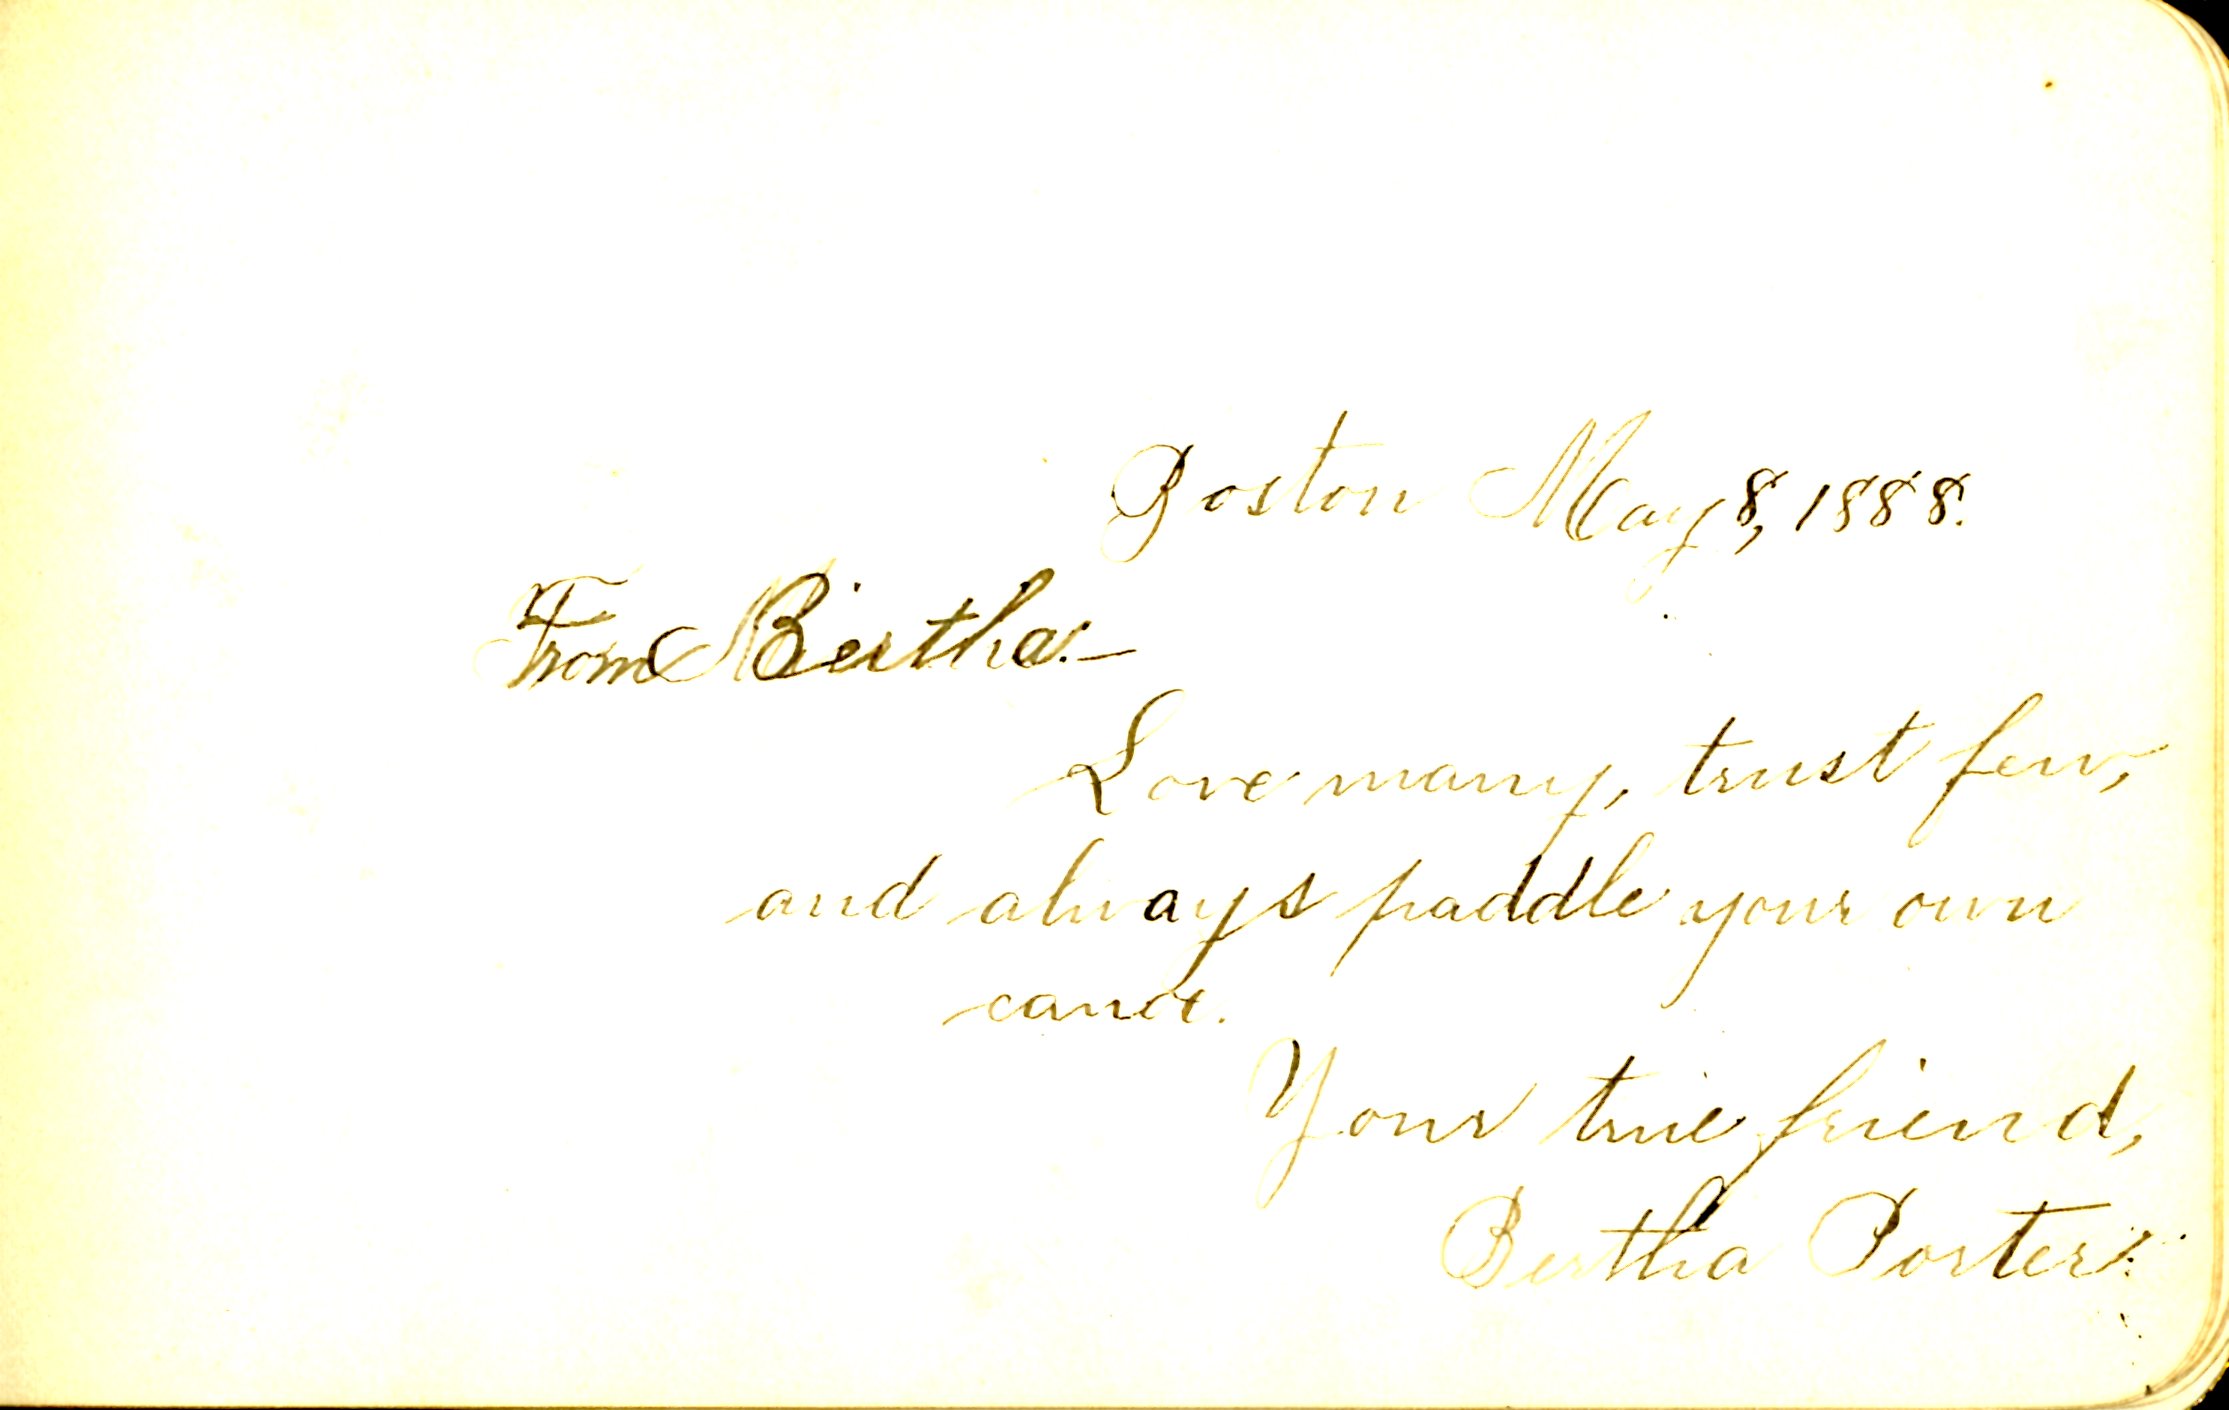 Boston May 8, 1888.
From Bertha.—
Love many, trust few,
and always paddle your own
canoe.
Your true friend,
Bertha Porter.